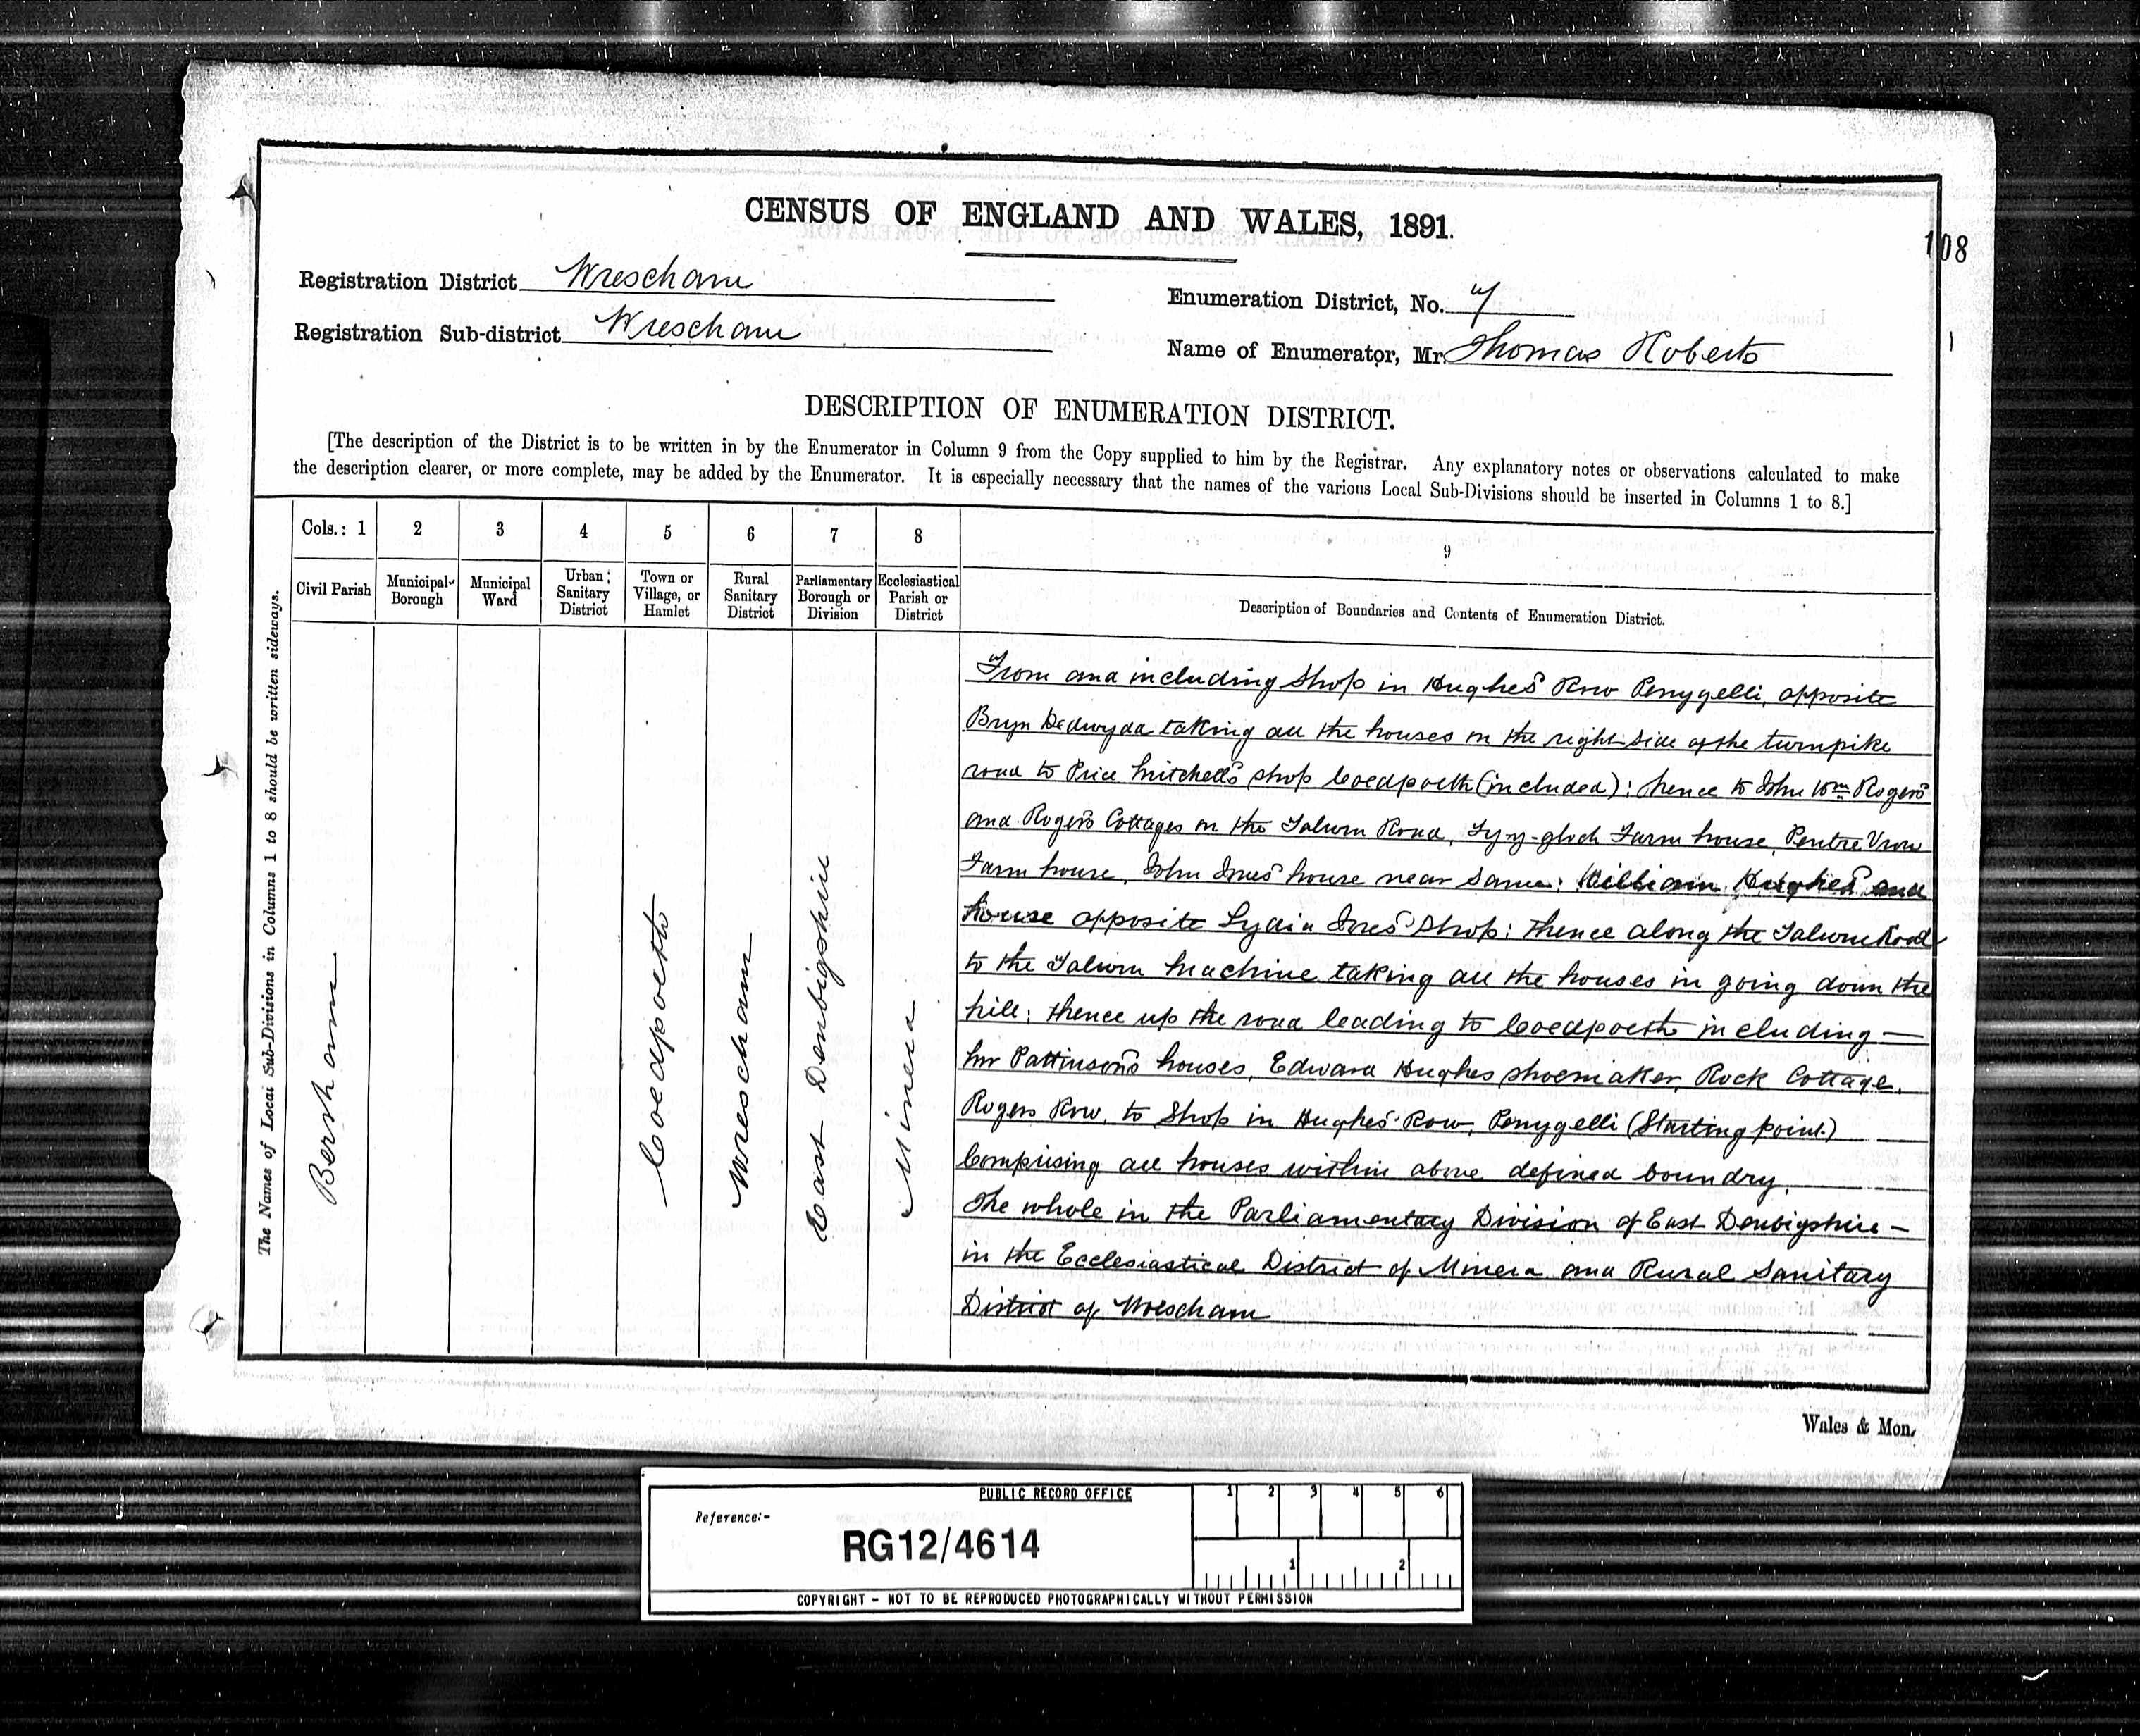 CENSUS OF ENGLAND AND WALES, 1891.
108
Registration District Wrexham
Enumeration District, No. 7
Registration Sub-district Wrexham
Name of Enumerator, Mr. Thomas Roberts
DESCRIPTION OF ENUMERATION DISTRICT.
[The description of the District is to be written in by the Enumerator in Column 9 from the Copy supplied to him by the Registrar. Any explanatory notes or observations calculated to make
the description clearer, or more complete, may be added by the Enumerator. It is especially necessary that the names of the various Local Sub-Divisions should be inserted in Columns 1 to 8.]
The Names of Local Sub-Divisions in Columns 1 to 8 should be written sideways.
Cols.: 1 2 3 4 5 6 7 8 9
Civil Parish
Municipal Borough
Municipal Ward
Urban Sanitary District
Town or Village, or Hamlet
Rural Sanitary District
Parliamentary Borough or Division
Ecclesiastical Parish or District
Description of Boundaries and Contents of Enumeration District.
Bersham
Coedpoeth
Wrexham
East Denbigshire
Minera
From and including Shop in Hughes' Row Penygelli, opposite
Bryn taking all the houses on the right side of the turnpike
road to Price Mitchell's shop Coedpoeth (included); thence to John Wm Rogers'
and Rogers Cottages on the Talwrn Road, Farm house, Pentre Vron
Farm house, John Jones' house near same; William Hughes' and
house opposite Lydia Jones' Shop; thence along the Talwrn Road
to the Talwrn Machine taking all the houses in going down the
hill; thence up the road leading to Coedpoeth including —
Mr Pattinson's houses, Edward Hughes shoemaker, Rock Cottage,
Rogers Row, to Shop in Hughes' Row, Penygelli (Starting point.)
Comprising all houses within above defined boundry.
The whole in the Parliamentary Division of East Denbigshire —
in the Ecclesiastical District of Minera and Rural Sanitary
District of Wrexham
Wales & Mon.
PUBLIC RECORD OFFICE
1 2 3 4 5 6
Reference:-
RG12/4614
1 2
COPYRIGHT - NOT TO BE REPRODUCED PHOTOGRAPHICALLY WITHOUT PERMISSION